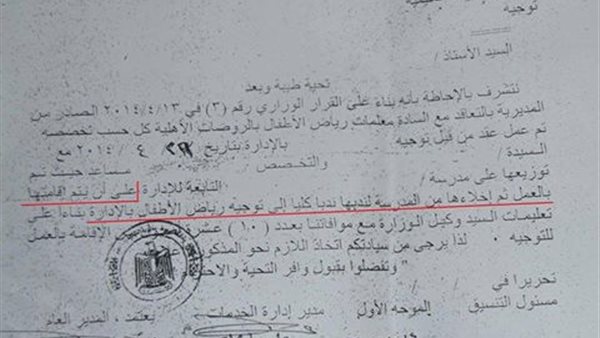 توجيه
السيد الأستاذ /
تحية طيبة وبعد
نتشرف بالإحاطة بأنه بناء على القرار الوزاري رقم (٣) في ٢٠١٤/٤/١٣ الصادر من
المديرية بالتعاقد مع السادة معلمات رياض الأطفال بالروضات الأهلية كل حسب تخصصه
تم عمل عقد من قبل توجيه بالإدارة بتاريخ ٤ / ٢٠١٤ مع
السيدة / والتخصص مساعد حيث تم
توزيعها على مدرسة / التابعة للإدارة على أن يتم إقامتها
بالعمل ثم إخلاءها من المدرسة لندبها ندبا كليا إلى توجيه رياض الأطفال بالإدارة بناءا على
تعليمات السيد وكيل الوزارة مع موافاتنا بعدد (١٠) عشرة الإقامة بالعمل
للتوجيه . لذا يرجى من سيادتكم اتخاذ اللازم نحو المذكور
" وتفضلوا بقبول وافر التحية والاحترام
تحريرا في
مسئول التنسيق الموجه الأول مدير إدارة الخدمات يعتمد، المدير العام